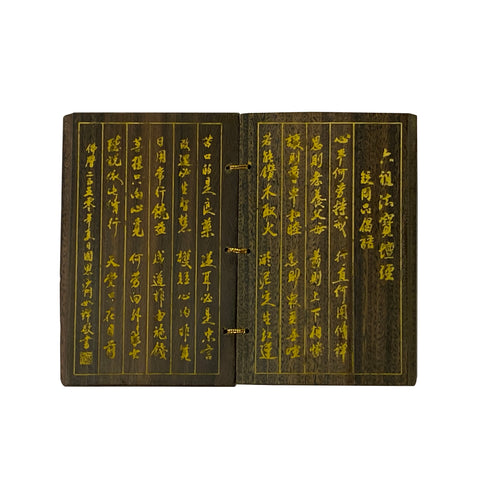 六祖法寶壇經
疑問品偈語
心平何勞持戒 行直何用修禪
恩則孝養父母 義則上下相憐
讓則尊卑和睦 忍則眾惡無喧
若能鑽木取火 淤泥定生紅蓮
苦口的是良藥 逆耳必是忠言
改過必生智慧 護短心內非賢
日用常行饒益 成道非由施錢
菩提只向心覓 何勞向外求玄
聽說依此修行 天堂只在目前
佛曆二五五零年 沙門 敬書